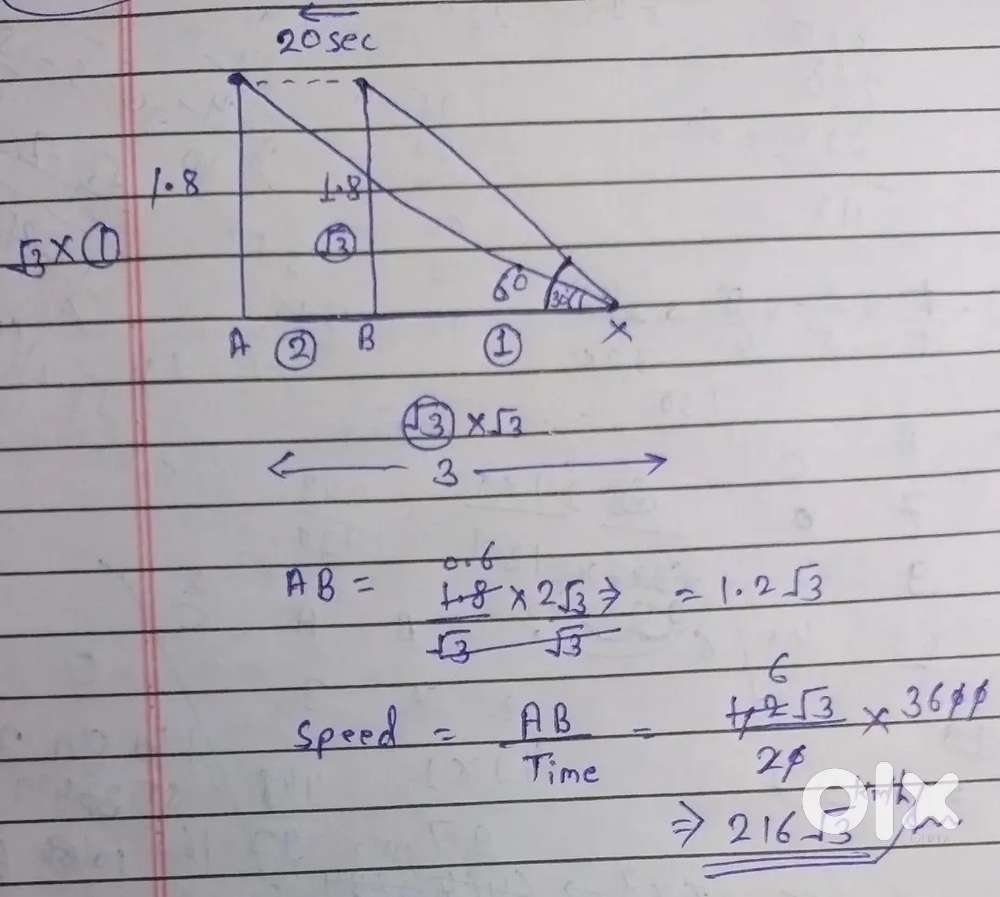 20 sec
1.8 1.8
√3 × 1 √3
60 30°
A 2 B 1 X
√3 × √3
3
0.6
AB = 1.8/√3 × 2√3/√3 ⇒ = 1.2√3
6
Speed = AB/Time = 1.2√3/20 × 3600
⇒ 216√3 km/h
olx